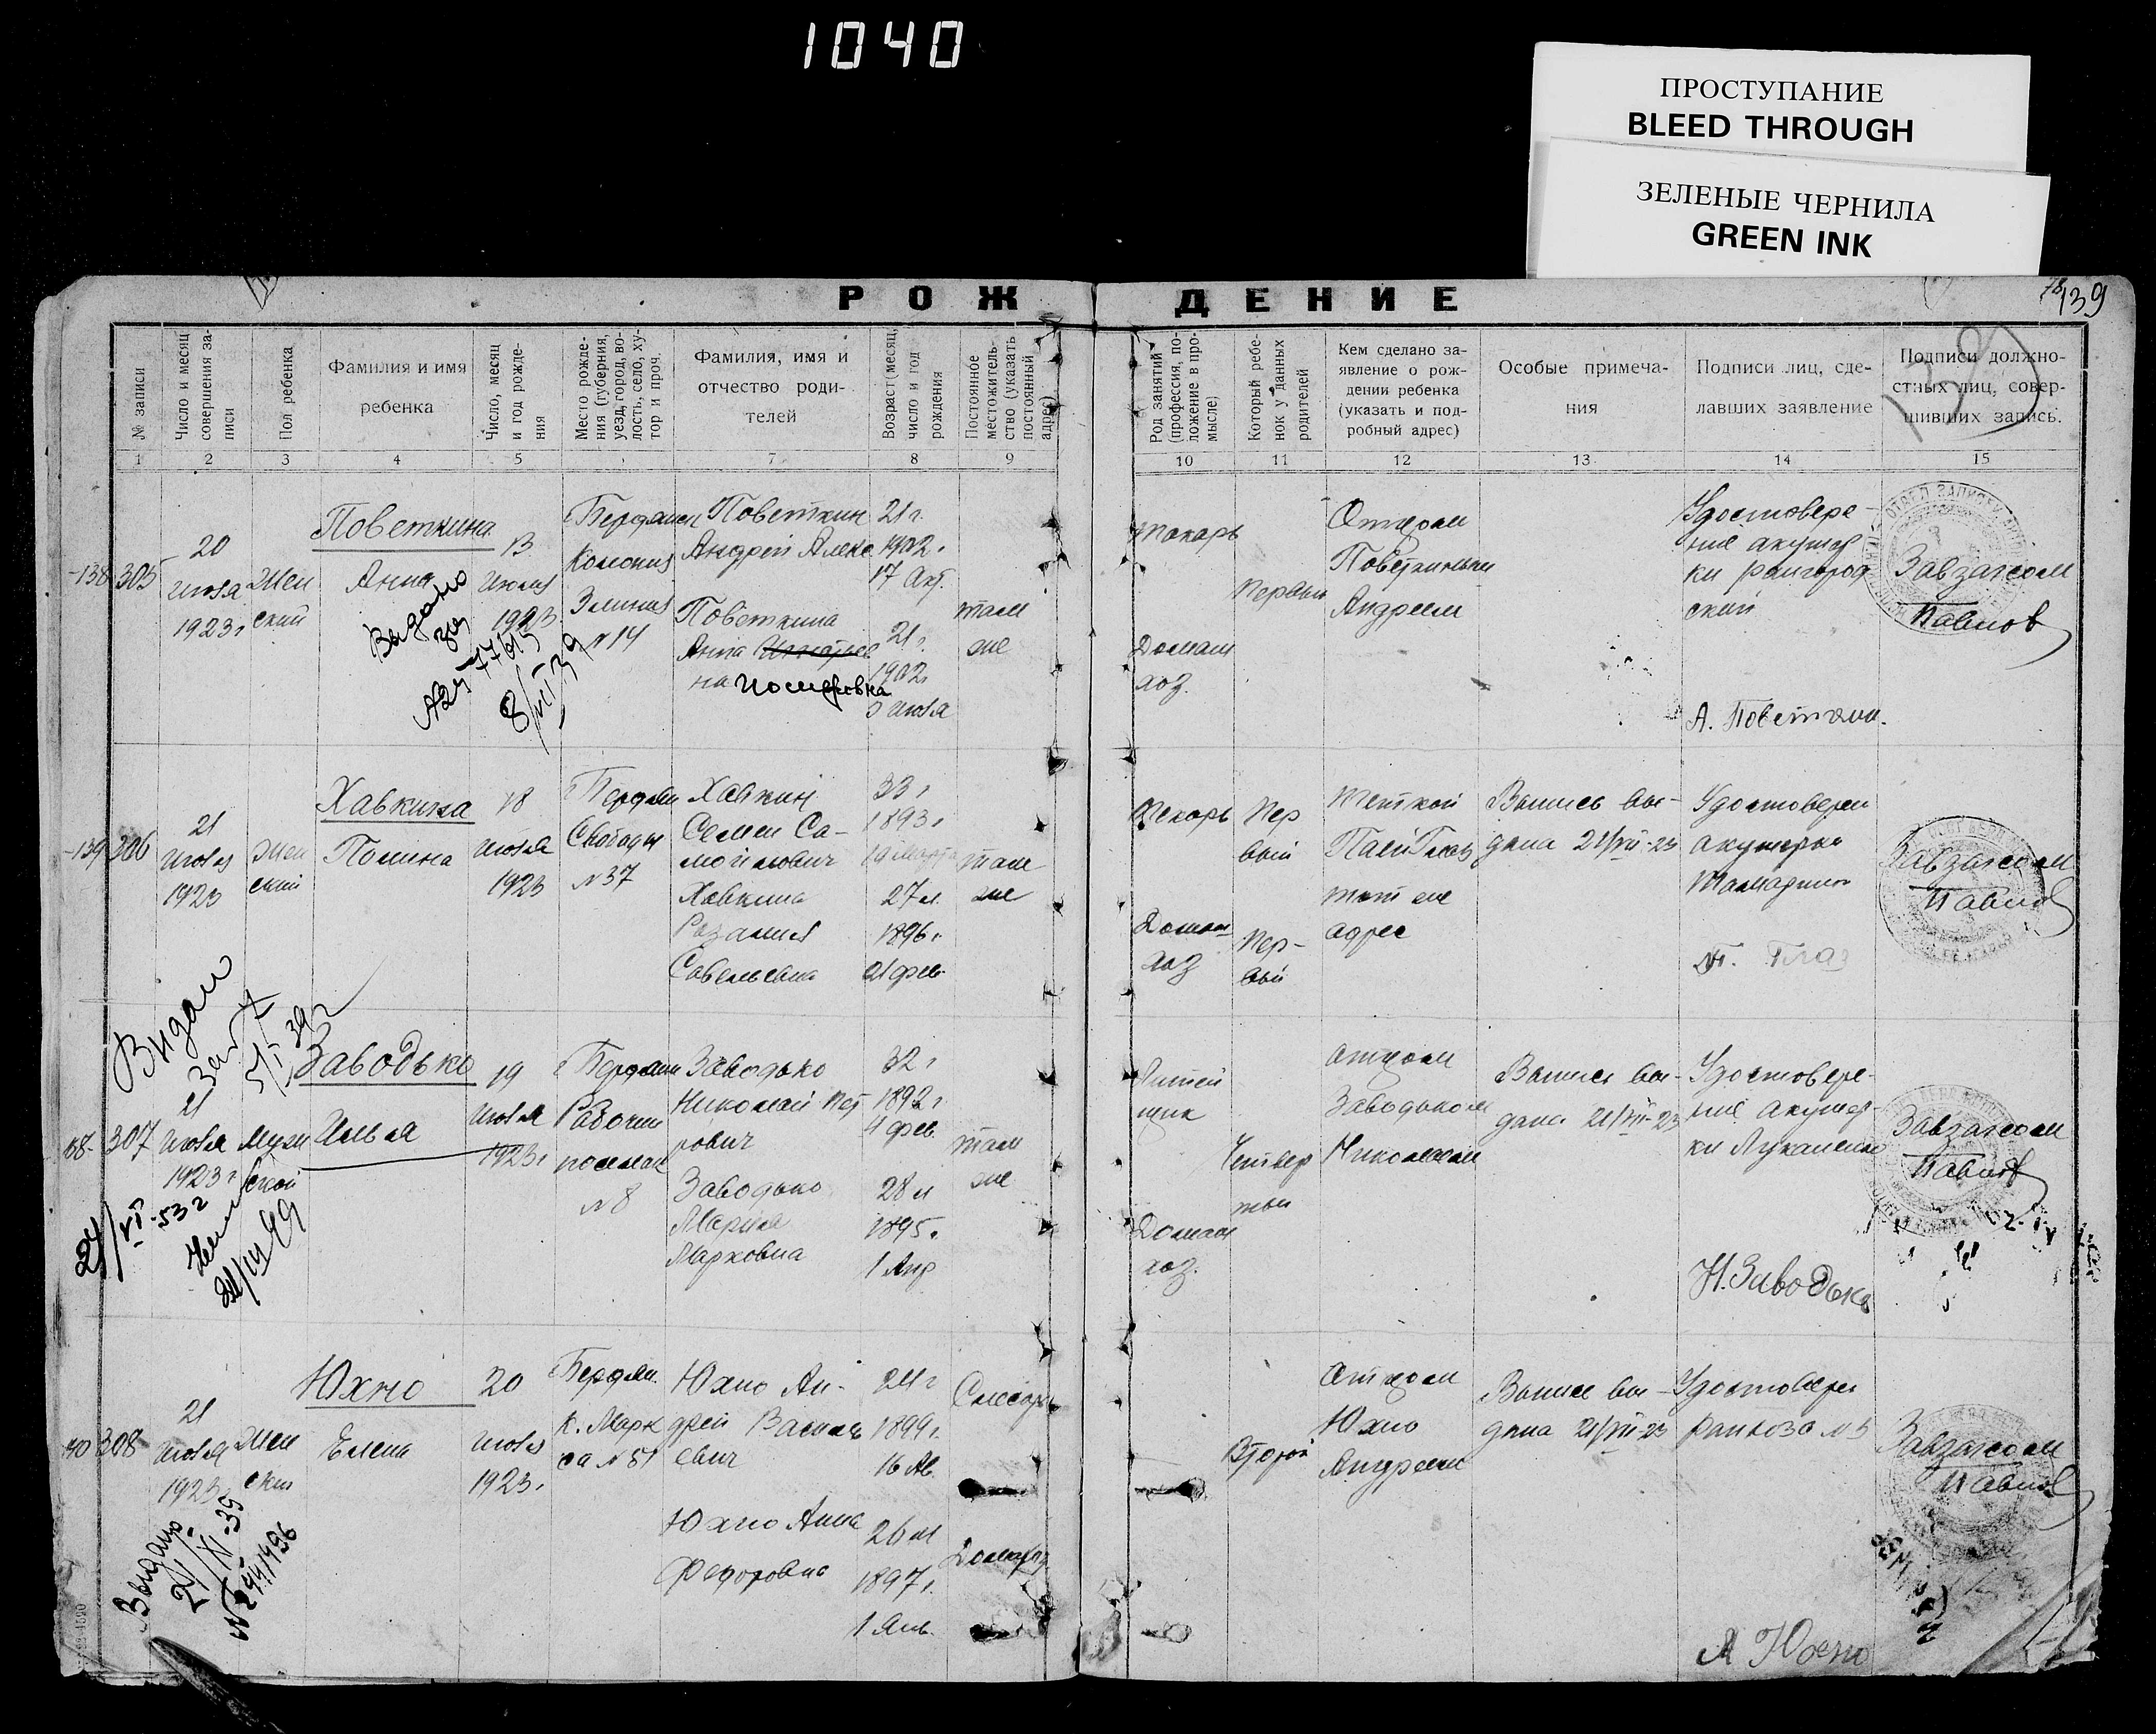 1040
ПРОСТУПАНИЕ
BLEED THROUGH
ЗЕЛЕНЫЕ ЧЕРНИЛА
GREEN INK
РОЖДЕНИЕ
139
№ записи
Число и месяц совершения за-
писи
Пол ребенка
Фамилия и имя
ребенка
Число, месяц
и год рожде-
ния
Место рожде-
ния (губерния,
уезд, город, во-
лость, село, ху-
тор и проч.
Фамилия, имя и
отчество роди-
телей
Возраст (месяц,
число и год
рождения
Постоянное
местожитель-
ство (указать
постоянный
адрес)
Род занятий
(профессия, по-
ложение в про-
мысле)
Который ребе-
нок у данных
родителей
Кем сделано за-
явление о рож-
дении ребенка
(указать и под-
робный адрес)
Особые примеча-
ния
Подписи лиц, сде-
лавших заявление
Подписи должно-
стных лиц, совер-
шивших запись.
1 2 3 4 5 7 8 9 10 11 12 13 14 15
-138
305
20
июля
1923 г
Жен
ский
Поветкина
Анна
Выдано
8/VI 39
13
июля
1923
Бердянск
Колония
№ 14
Поветкин
Андрей Алекс
Поветкина
Анна
на
21 г.
1902.
17 Окт.
21 г.
1902.
там
же
токарь
Домаш
хоз.
Первый
Отцом
Поветкиным
Андреем
Удостовере-
ние акушер
ки райгород
ской
А. Поветкин.
Завзагсом
Павлов
-139
306
21
июля
1923
Жен
ский
Хавкина
Полина
18
июля
1923
Бердян
Свободы
№ 37
Хавкин
Семен Са-
мойлович
Хавкина
Розалия
Савельевна
1893 г
19 Марта
27 л.
1896 г.
21 фев.
там
же
Пекарь
Домаш
хоз
Пер
вый
Пер-
вый
Теткой
тот же
адрес
Выпись вы-
дана 21/VII-23
Удостоверен
акушерки
П. Глаз
Завзагсом
Павлов
307
21
июля
1923 г
Муж
ской
Заводько
Илья
5/I 39 г
24/VI-53 г
19
июля
1923 г
Бердян
Рабочий
поселок
№ 8
Заводько
Николай Пет
рович
Заводько
Мария
Марковна
32 г
1892 г
4 фев.
28 л
1895.
1 Апр
там
же
Литей
щик
Домаш
хоз.
Четвер
тый
Отцом
Заводьком
Николаем
Выпись вы-
дана 21/VII-23
Удостовере-
ние акушер-
ки Лукашенко
Н. Заводько
Завзагсом
Павлов
308
21
июля
1923
Жен
ский
Юхно
Елена
Выдано
21/XI-39
20
июля
1923.
Бердян.
К. Марк
са № 51
Юхно Ан-
дрей Василь
евич
Юхно Анна
Федоровна
24 г
1899 г.
16 Ав.
26 л
1897 г.
1 Янв.
Слесарь
Домахоз
Второй
Отцом
Юхно
Андреем
Выпись вы-
дана 21/VII-23
Удостоверен
А Юхно
Завзагсом
Павлов